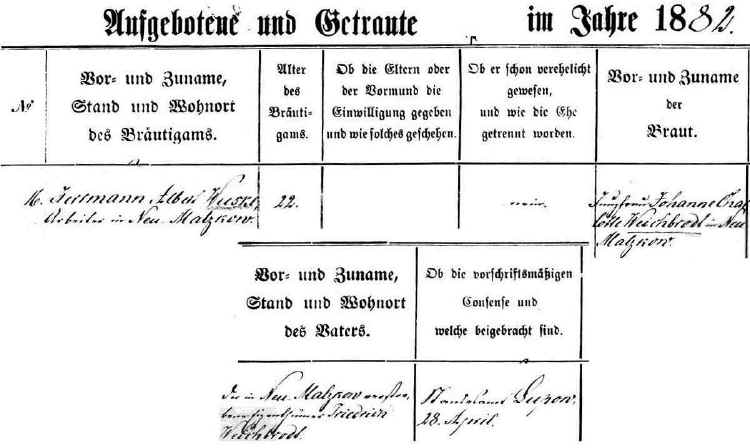 Aufgebotene und Getraute im Jahre 1882.
No
Vor- und Zuname,
Stand und Wohnort
des Bräutigams.
Alter
des
Bräuti-
gams.
Ob die Eltern oder
der Vormund die
Einwilligung gegeben
und wie solches geschehen.
Ob er schon verehelicht
gewesen,
und wie die Ehe
getrennt worden.
Vor- und Zuname
der
Braut.
16. Hermann Albert
Arbeiter in Neu Malzkow.
22.
nein.
Jungfrau Johanne Char
lotte Weichbrodt in Neu
Malzkow.
Vor- und Zuname,
Stand und Wohnort
des Vaters.
Ob die vorschriftsmäßigen
Consense und
welche beigebracht sind.
Der in Neu Malzkow verstor-
bene Eigenthümer Friedrich
Weichbrodt.
Standesamt Lupow.
28. April.